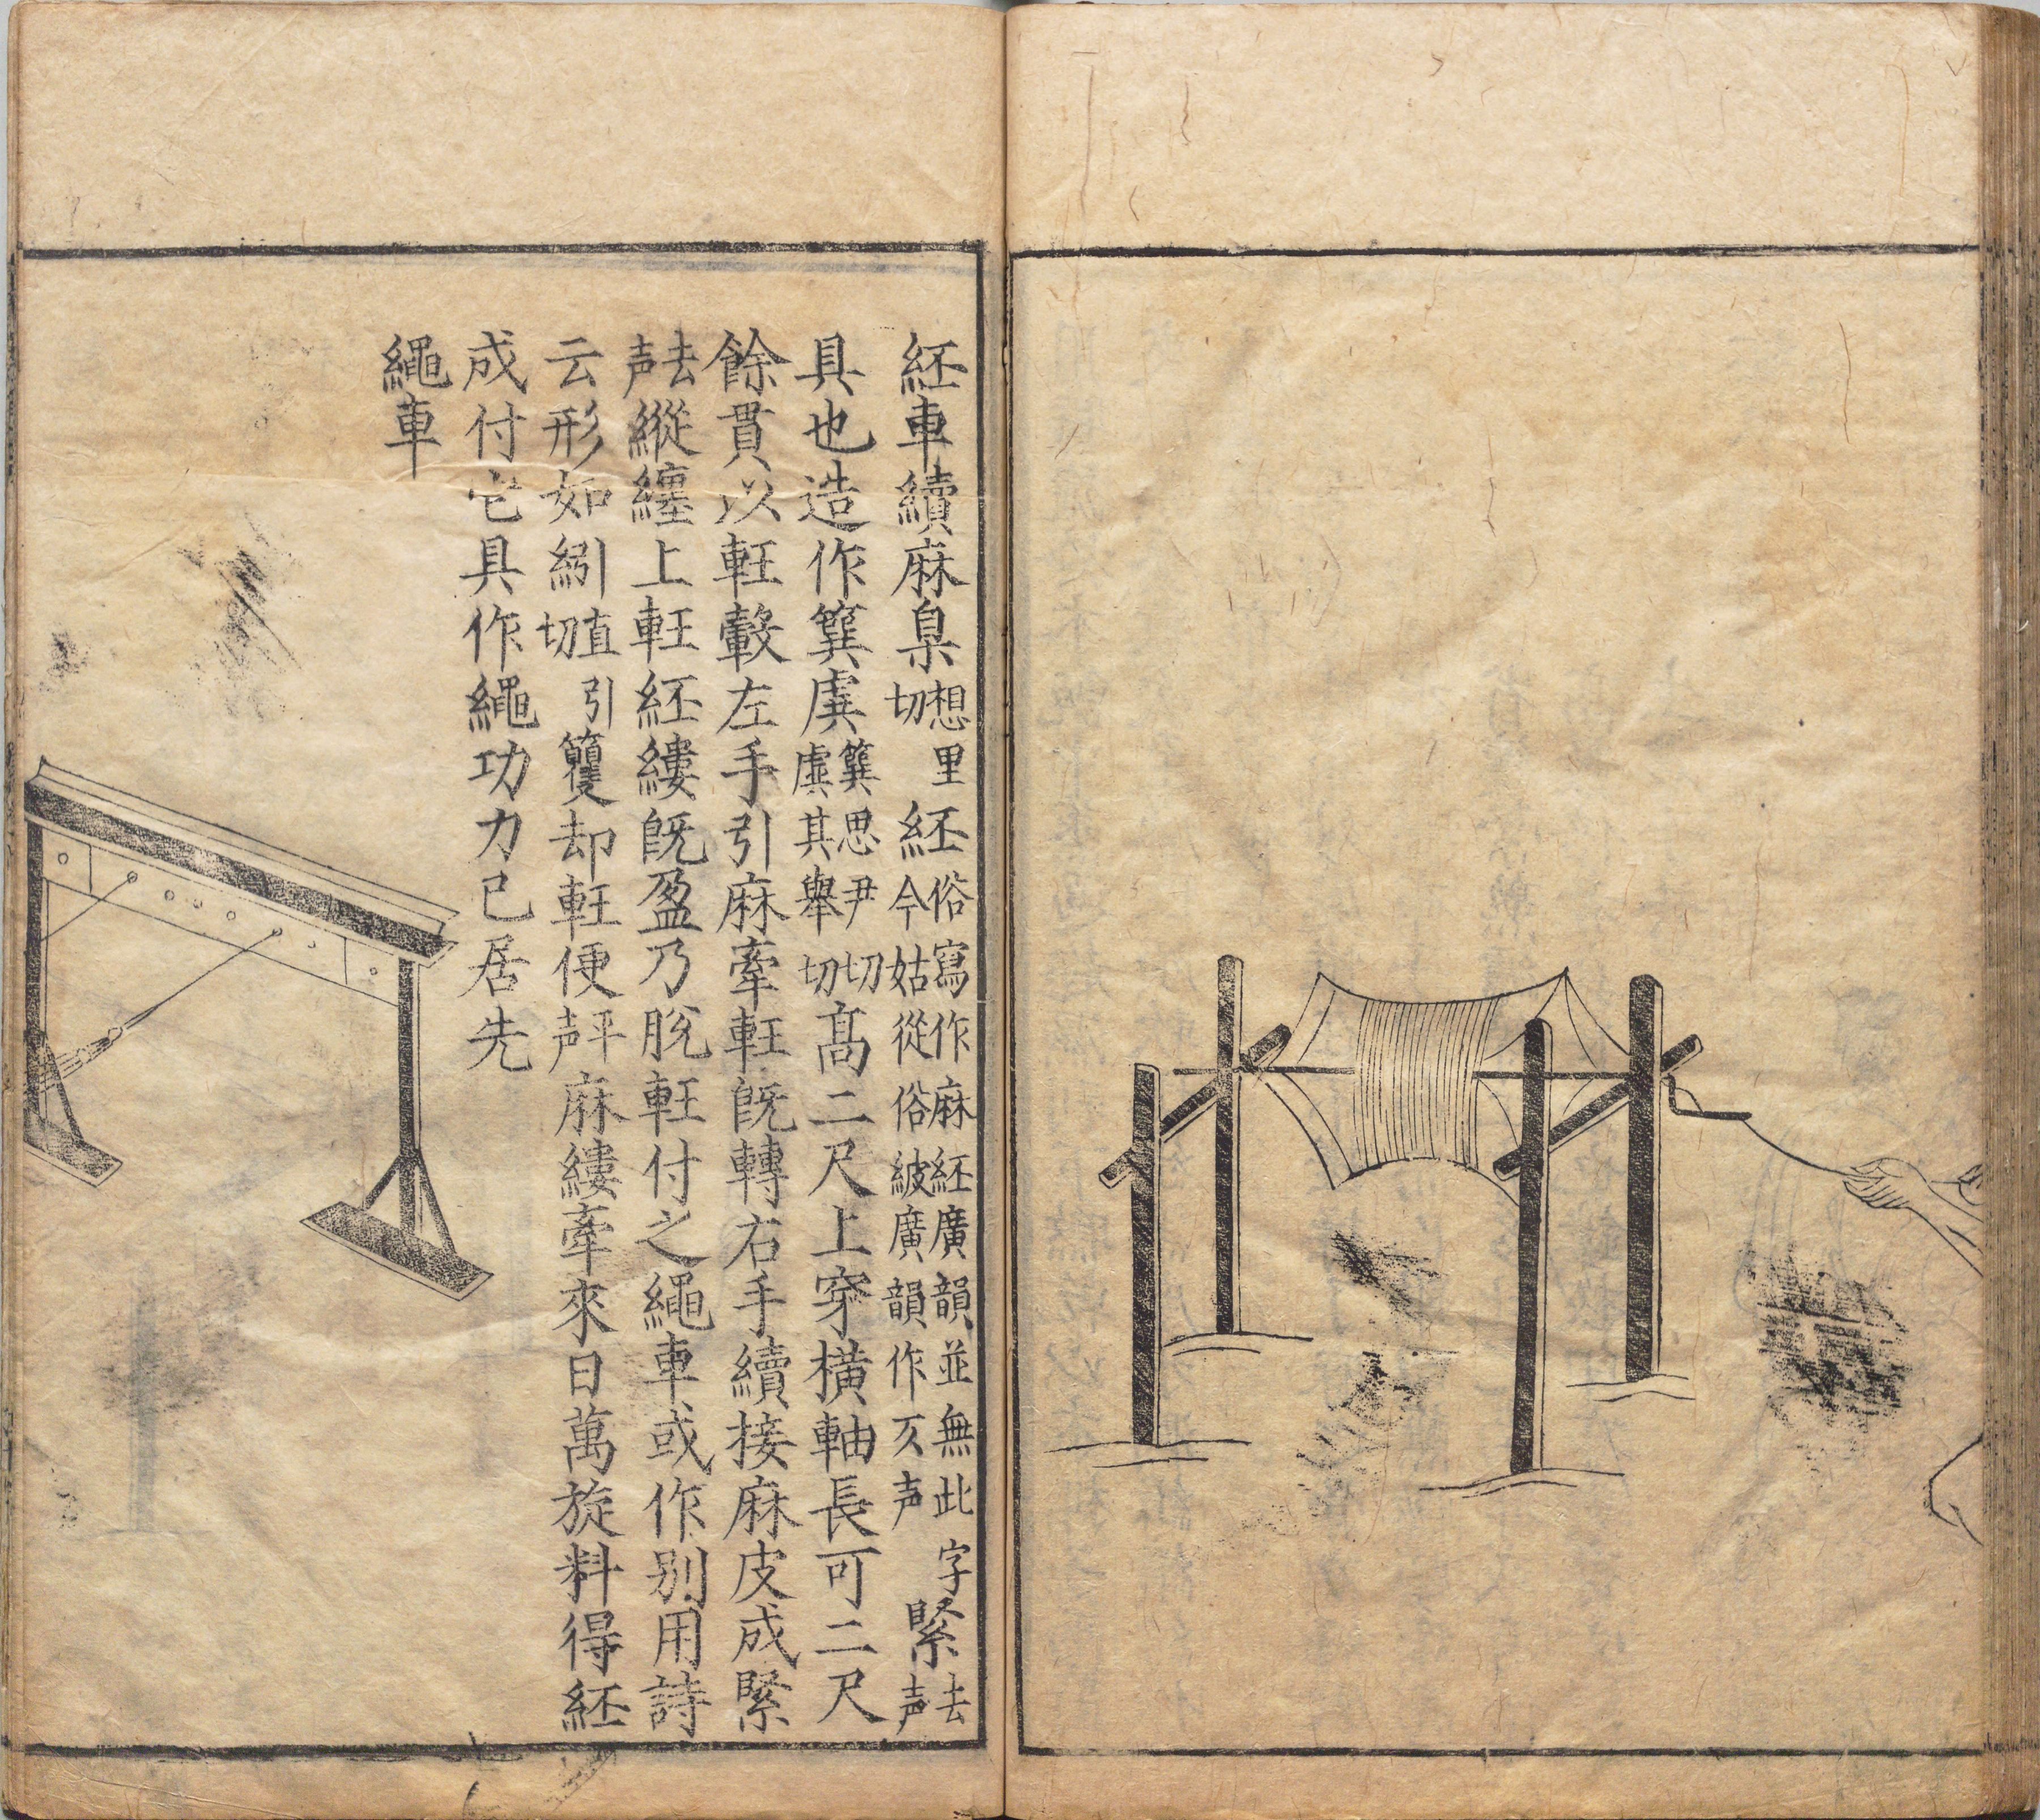 紝車續麻枲想里切紝俗寫作麻紝廣韻並無此字今姑從俗紴廣韻作平声緊去声
具也造作簨虡簨思尹切虡其舉切高二尺上穿橫軸長可二尺
餘貫以軖轂左手引麻牽軖旣轉右手續接麻皮成緊
去声縱纏上軖紝縷旣盈乃脫軖付之繩車或作別用詩
云形如紖直引切籰却軖便平声麻縷牽來日萬旋料得紝
成付它具作繩功力已居先
繩車